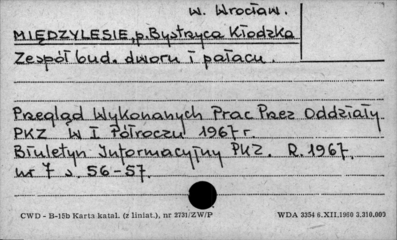 w. Wrocław.
MIĘDZYLESIE, p. Bystrzyca Kłodzka
Zespół bud. dworu i pałacu.
Przegląd Wykonanych Prac Przez Oddziały
PKZ W I Półroczu 1967 r.
Biuletyn Informacyjny PKZ. R. 1967,
nr 7 s. 56-57.
CWD - B-15b Karta katal. (z liniat.), nr 2731/ZW/P WDA 3354 6.XII.1960 3.310.003